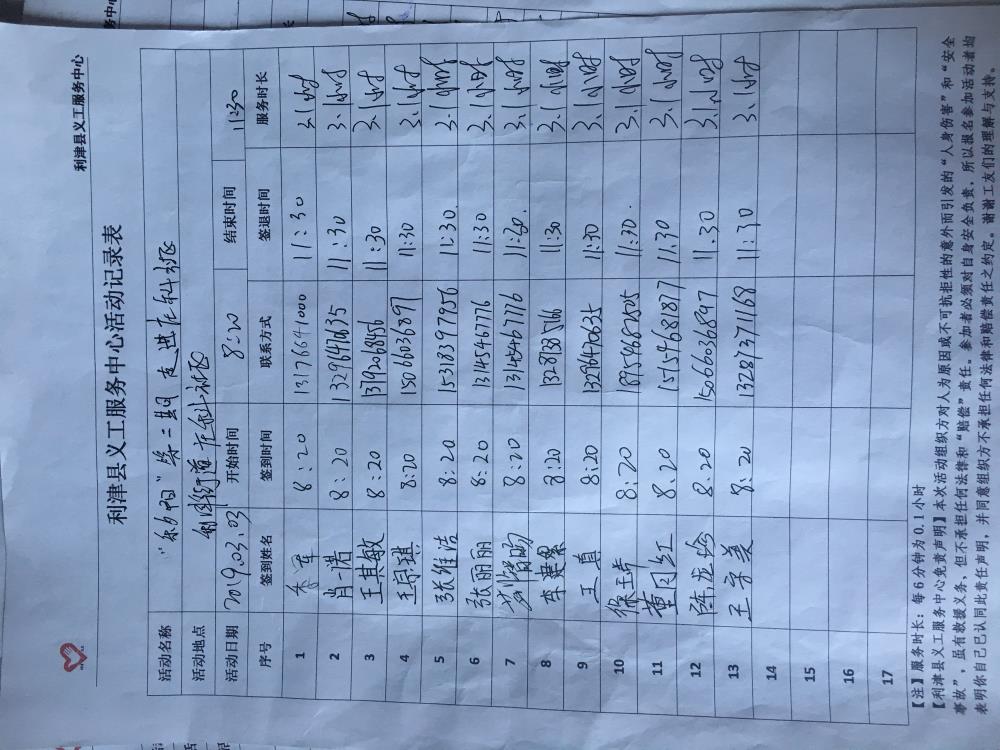 利津县义工服务中心
利津县义工服务中心活动记录表
活动名称 "幼阳"第三期 走进庄科社区
活动地点 利津街道庄科社区
活动日期 2019.03.03 开始时间 8:20 结束时间 11:30
序号 签到姓名 签到时间 联系方式 签退时间 服务时长
1 8:20 13176641000 11:30 3.1小时
2 肖一诺 8:20 132976470635 11:30 3.1小时
3 王其敏 8:20 13792068456 11:30 3.1小时
4 王综琪 8:20 15066036897 11:30 3.1小时
5 张维浩 8:20 15318397956 11:30 3.1小时
6 张丽丽 8:20 13145467776 11:30 3.1小时
7 8:20 13145467776 11:40. 3.1小时
8 8:20 11:30 3.1小时
9 王真 8:20 11:30 3.1小时
10 徐玉卓 8:20 11:30. 3.1小时
11 董园红 8.20 15154681877 11.30 3.1小时
12 8.20 15066036897 11.30 3.1小时
13 王字美 8:20 13287371168 11:30 3.1小时
14
15
16
17
【注】服务时长：每6分钟为0.1小时
【利津县义工服务中心免责声明】本次活动组织方对人为原因或不可抗拒性的意外而引发的“人身伤害”和“安全
事故”，虽有救援义务，但不承担任何法律和“赔偿”责任。参加者必须对自身安全负责，所以报名参加活动者均
表明你自己已认同此责任声明，并同意组织方不承担任何法律和赔偿责任之约定。谢谢工友们的理解与支持。